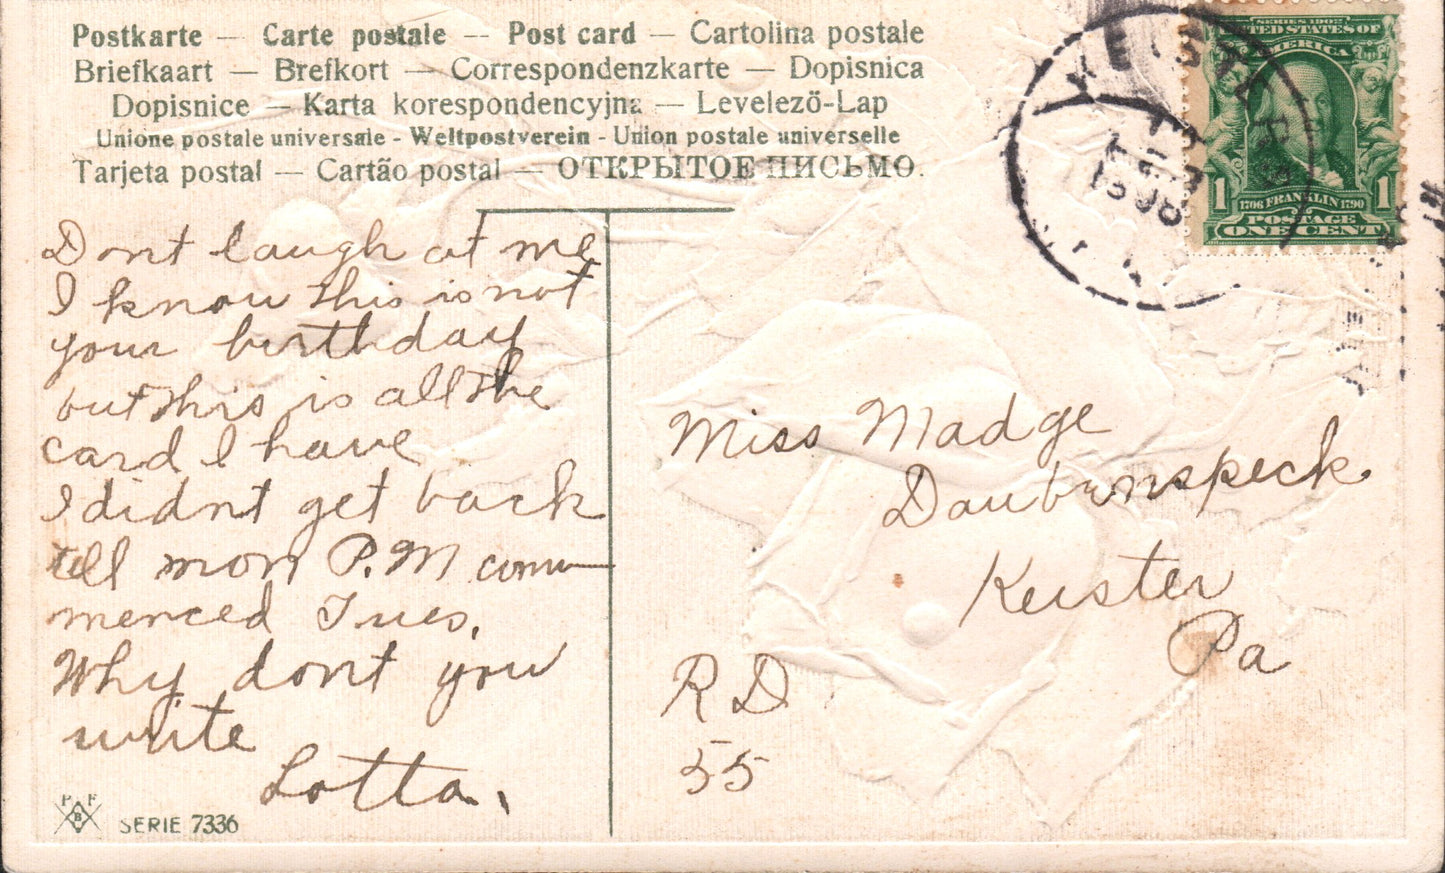 Postkarte — Carte postale — Post card — Cartolina postale
Briefkaart — Brefkort — Correspondenzkarte — Dopisnica
Dopisnice — Karta korespondencyjna — Levelező-Lap
Unione postale universale - Weltpostverein - Union postale universelle
Tarjeta postal — Cartão postal — ОТКРЫТОЕ ПИСЬМО.
Dont laugh at me
I know this is not
your birthday
but this is all the
card I have
I didnt get back
till mon P.M com-
menced Tues.
Why dont you
write
Lotta.
P F
B
SERIE 7336
SERIES 1902
UNITED STATES OF
AMERICA
1 1
1706 FRANKLIN 1790
POSTAGE
ONE CENT
Miss Madge
Daubenspeck
Keister
Pa
R D
55